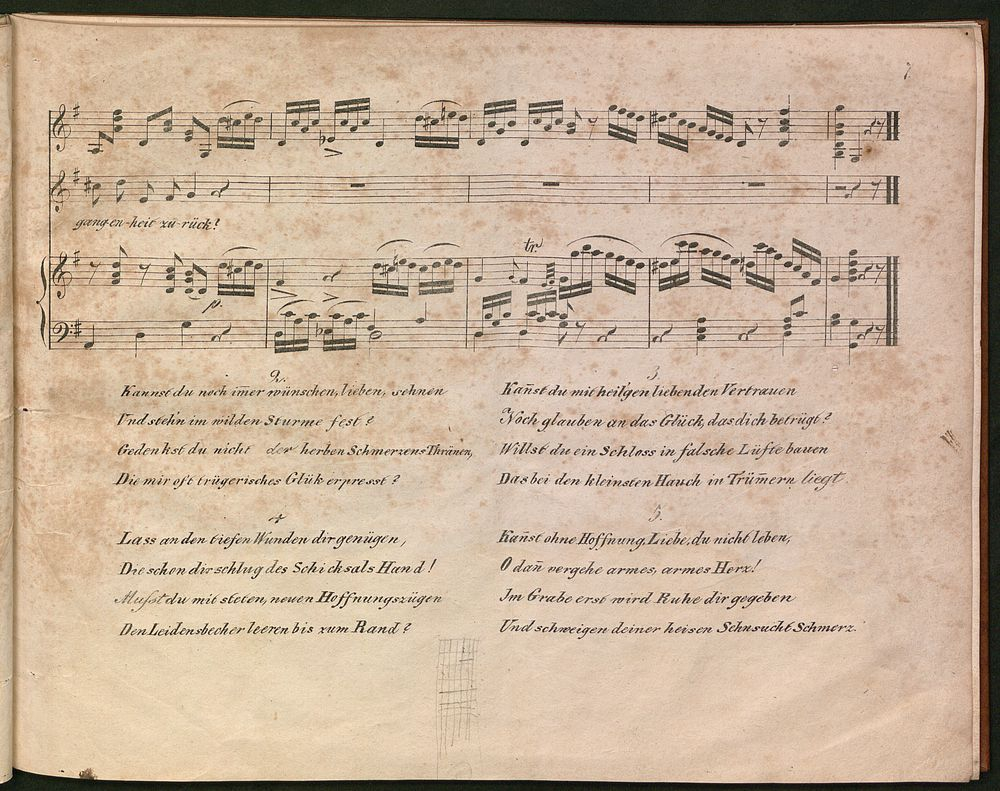 7
gang-en-heit zu-rück!
p.
tr.
2.
Kannst du noch im̅er wünschen, lieben, sehnen
Und steh'n im wilden Sturme fest?
Gedenkst du nicht der herben Schmerzens Thränen,
Die mir oft trügerisches Glük erpresst?
3.
Kan̅st du mit heil'gen liebenden Vertrauen
Noch glauben an das Glück, das dich betrügt?
Willst du ein Schloss in falsche Lüfte bauen
Das bei den kleinsten Hauch in Trüm̅ern liegt.
4
Lass an den tiefen Wunden dir genügen,
Die schon dir schlug des Schicksals Hand!
Musst du mit steten, neuen Hoffnungszügen
Den Leidensbecher leeren bis zum Rand?
5.
Kan̅st ohne Hoffnung, Liebe, du nicht leben,
O dan̅ vergehe armes, armes Herz!
Im Grabe erst wird Ruhe dir gegeben
Und schweigen deiner heisen Sehnsucht Schmerz.